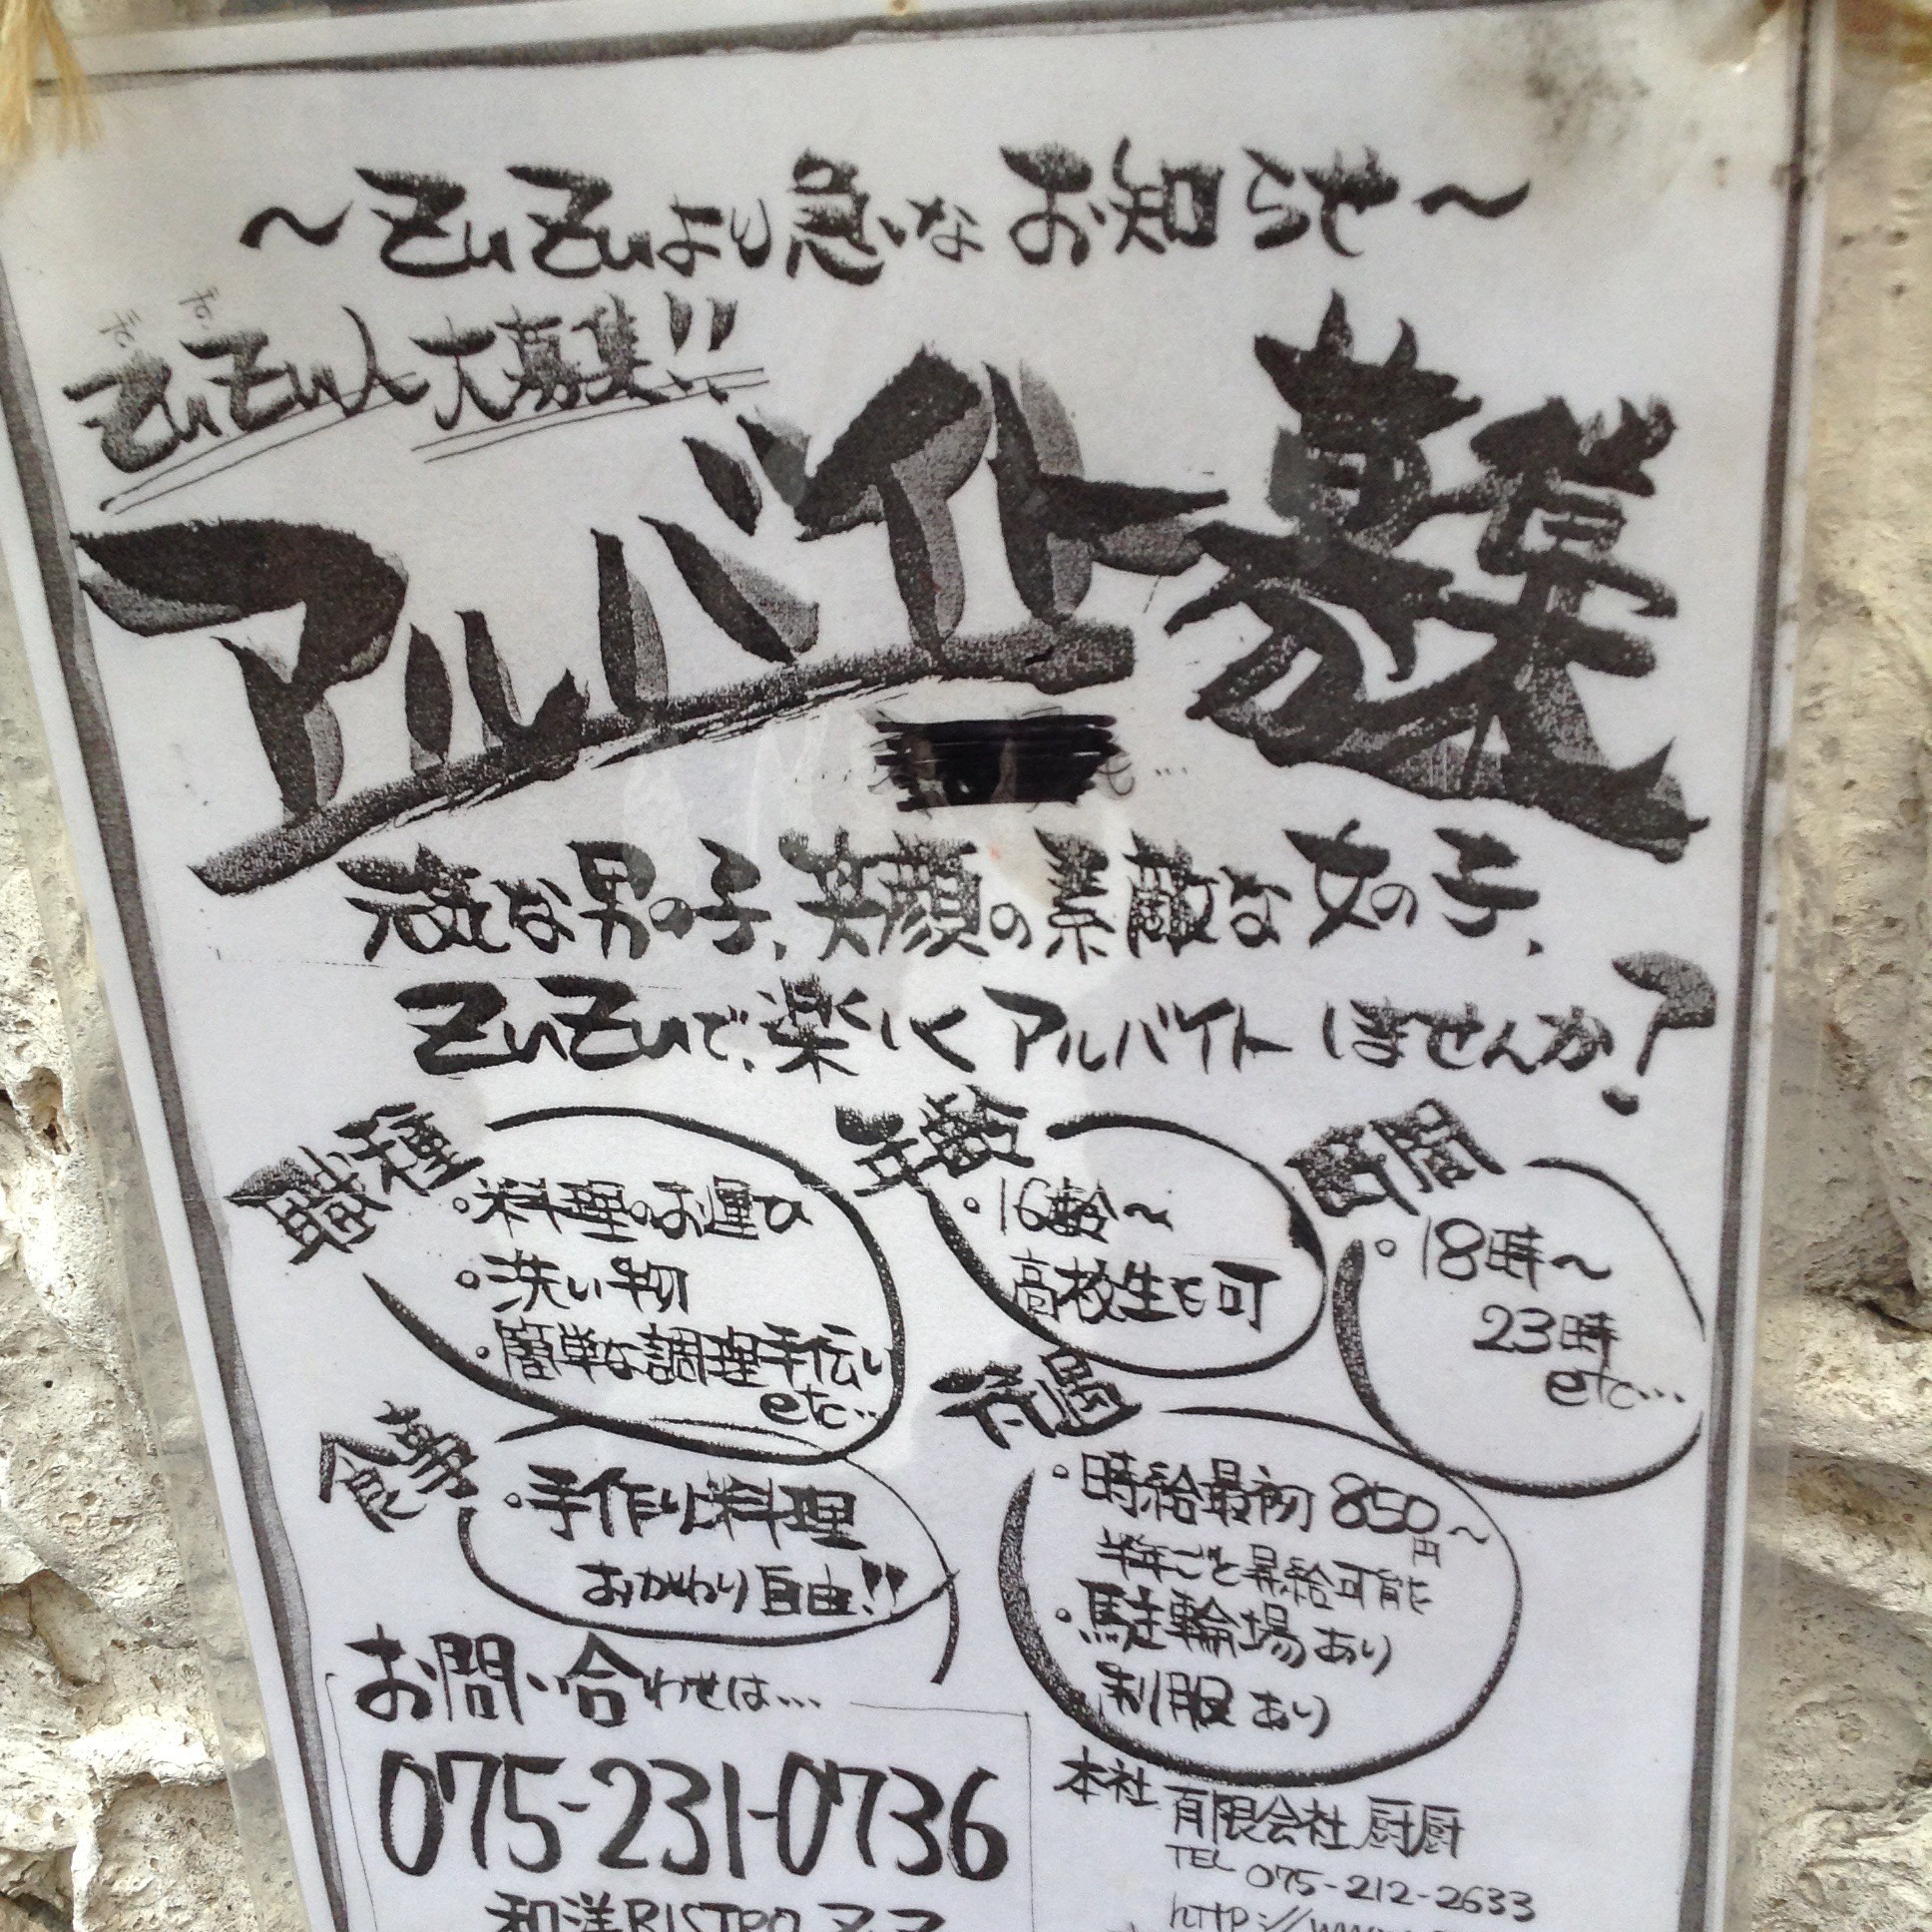 ～ZuZuより急なお知らせ～
ZuZu人大募集!!
アルバイト募集
元気な男の子、笑顔の素敵な女の子、
ZuZuで、楽しくアルバイトしませんか?
職種
・料理のお運び
・洗い物
・簡単な調理手伝い
etc…
年齢
・16齢～
高校生も可
時間
・18時～
23時
etc…
食事
・手作り料理
おかわり自由!!
待遇
・時給最初850円～
半年ごと昇給可能
・駐輪場あり
制服あり
お問い合わせは…
075-231-0736
和洋BISTRO ZuZu
本社 有限会社 厨厨
TEL 075-212-2633
http://www